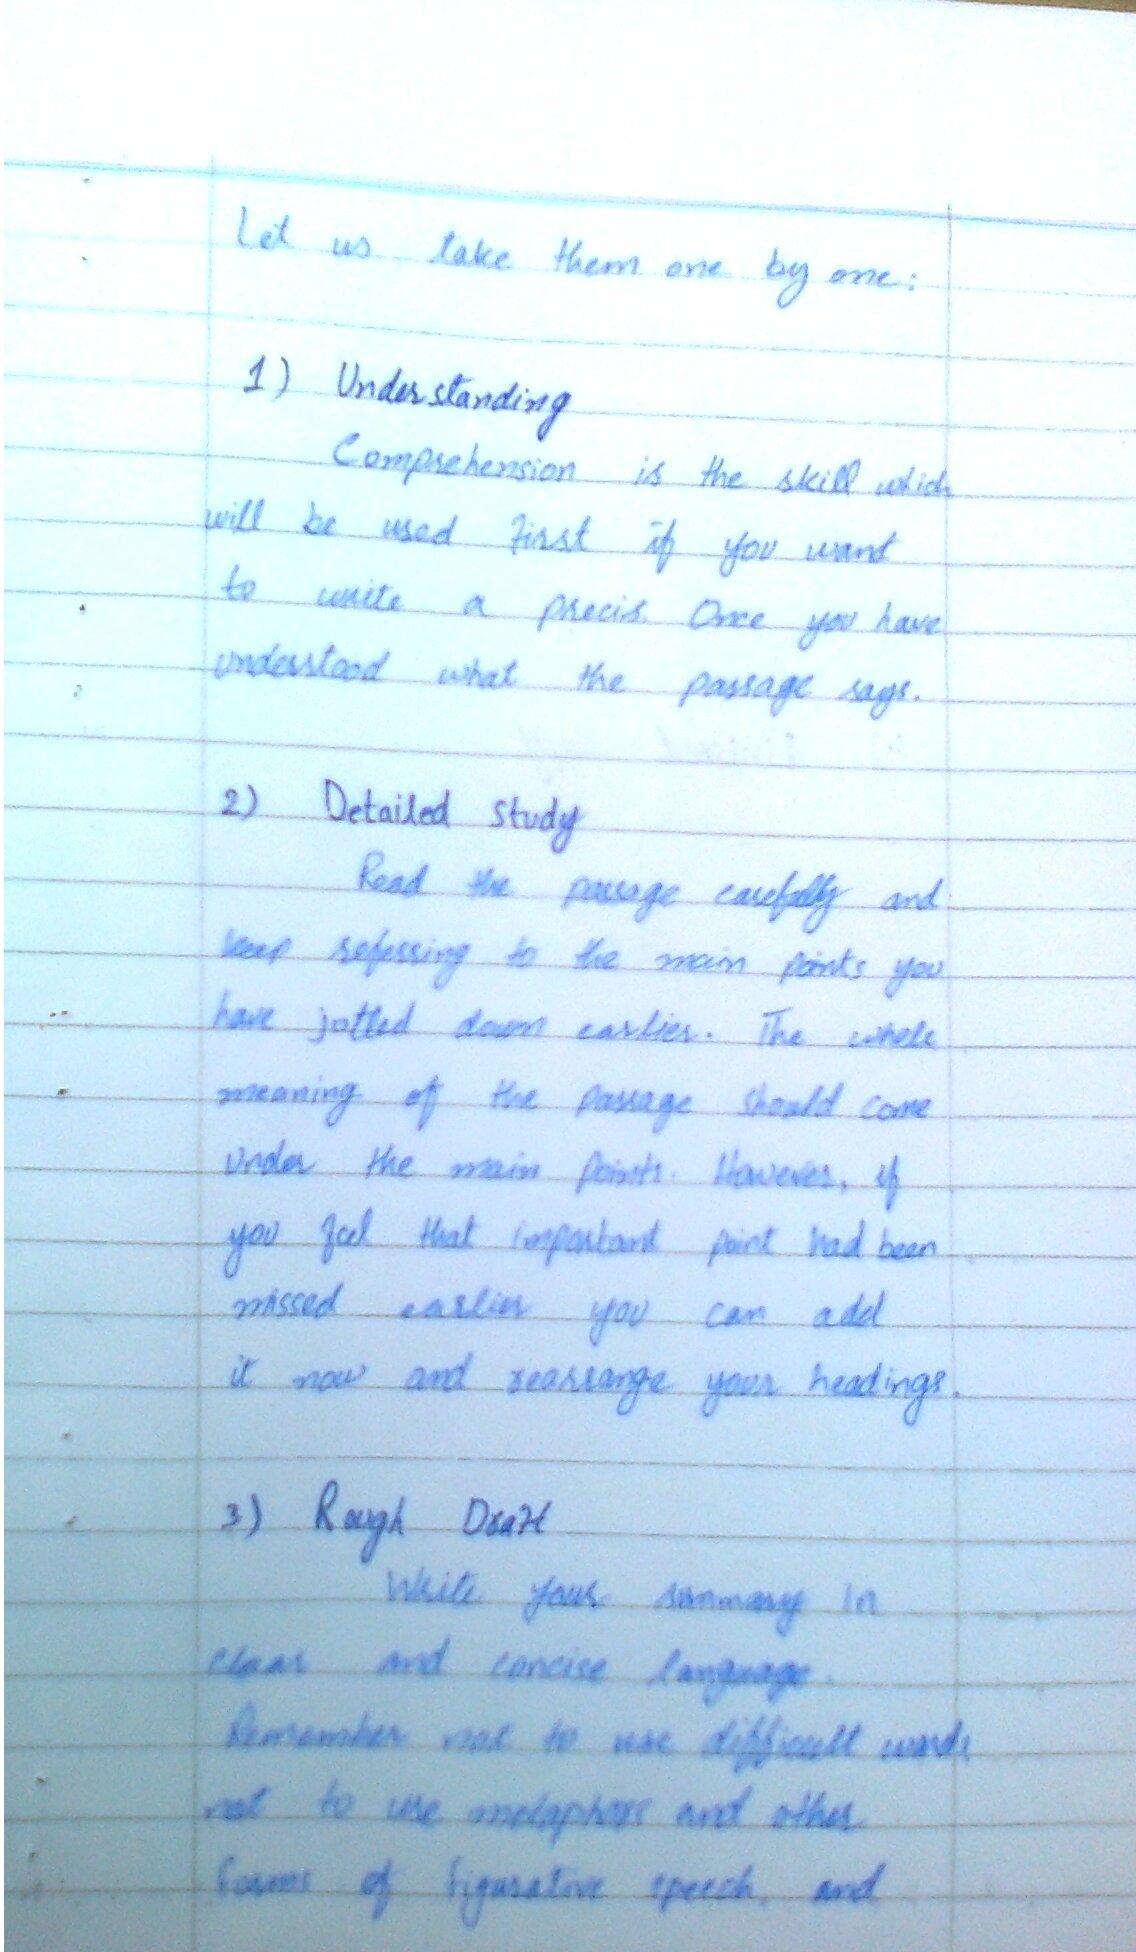 Let us take them one by one:
1) Understanding
Comprehension is the skill which
will be used first if you want
to write a precis. Once you have
understood what the passage says.
2) Detailed study
Read the passage carefully and
keep referring to the main points you
have jotted down earlier. The whole
meaning of the passage should come
under the main points. However, if
you feel that important point had been
missed earlier you can add
it now and rearrange your headings.
3) Rough Draft
Write your summary in
clear and concise language.
Remember not to use difficult words,
not to use metaphors and other
forms of figurative speech, and